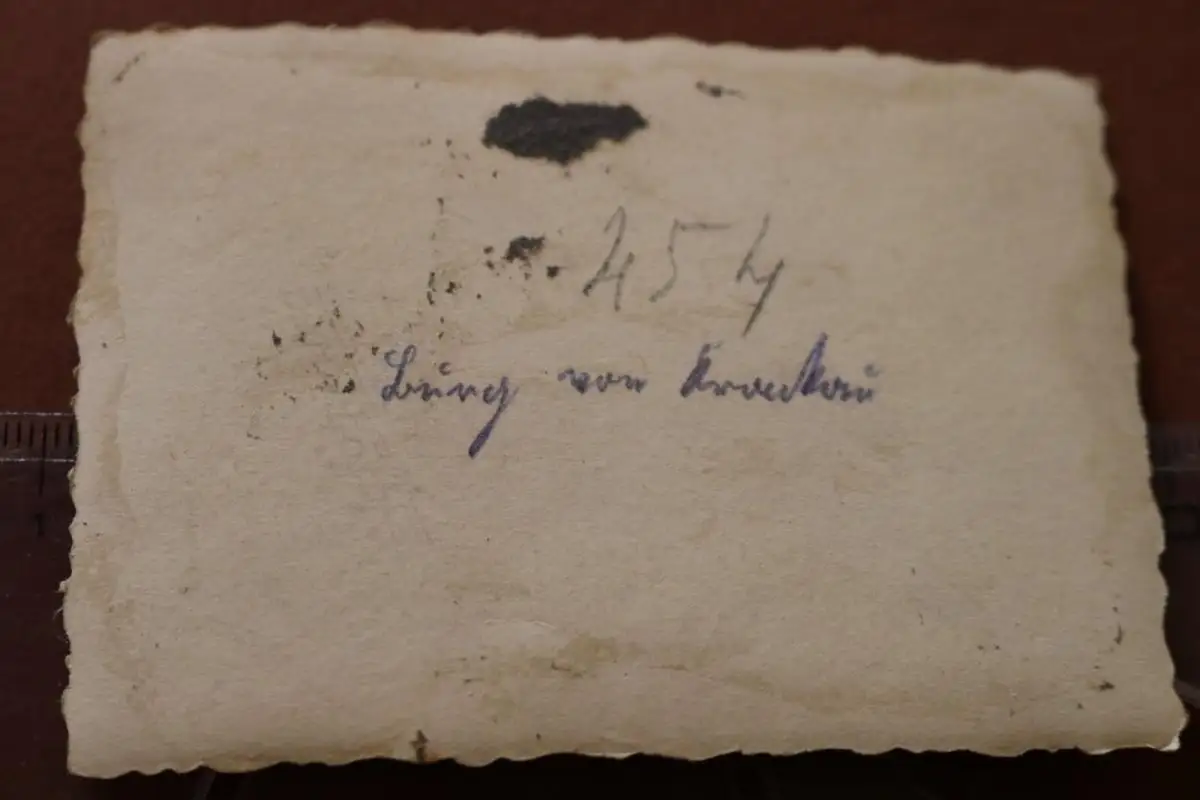 454
Burg von Krackau
1